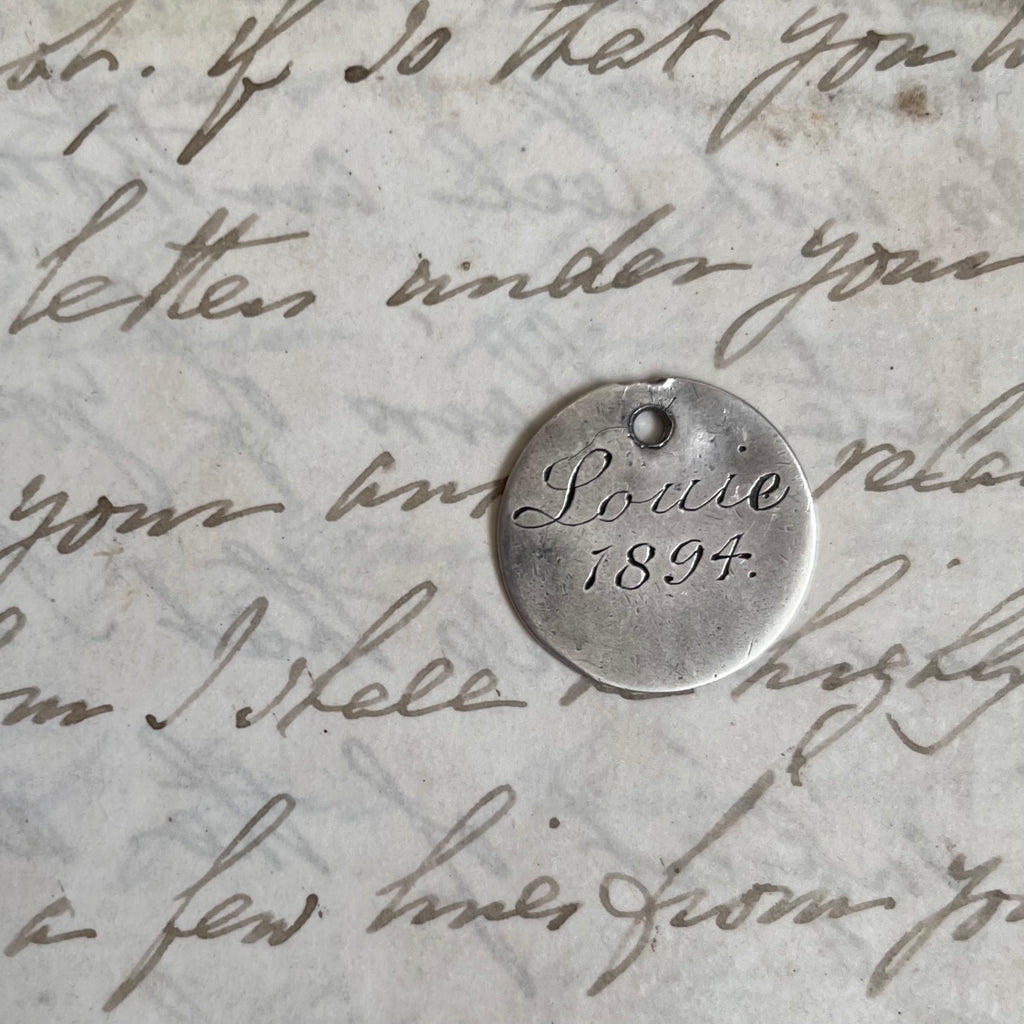 if so that you
letters under your
Louie
your
1894.
I shall highly
a few lines from